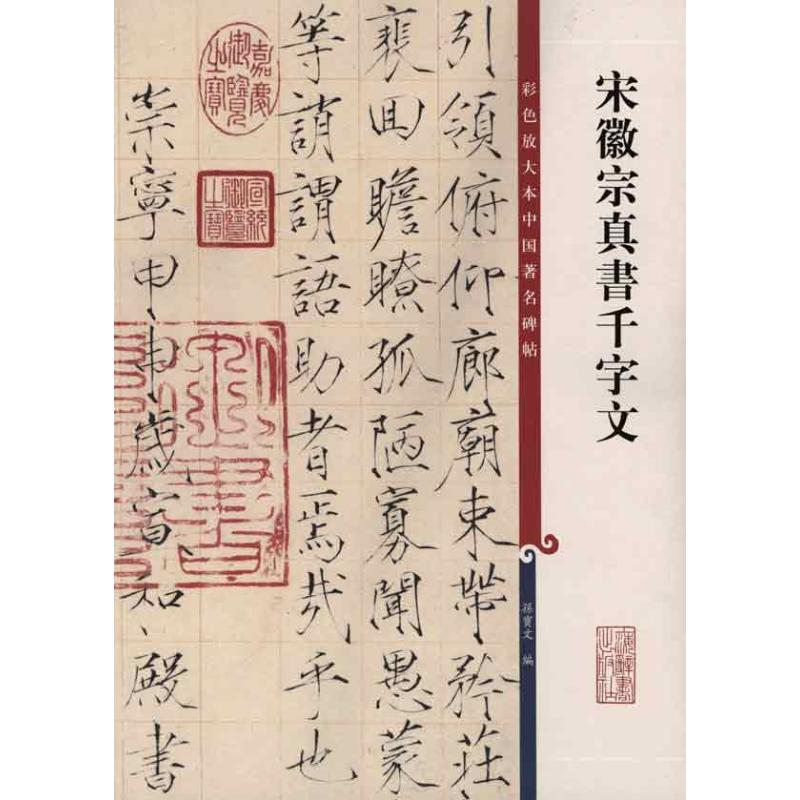 宋徽宗真書千字文
彩色放大本中国著名碑帖
孫寶文 編
引領俯仰廊廟束帶矜莊
裵回瞻瞭孤陋寡聞愚蒙
等誚謂語助者焉哉乎也
嘉慶御覽之寶
宣統御覽之寶
崇寧甲申歲宣和殿書